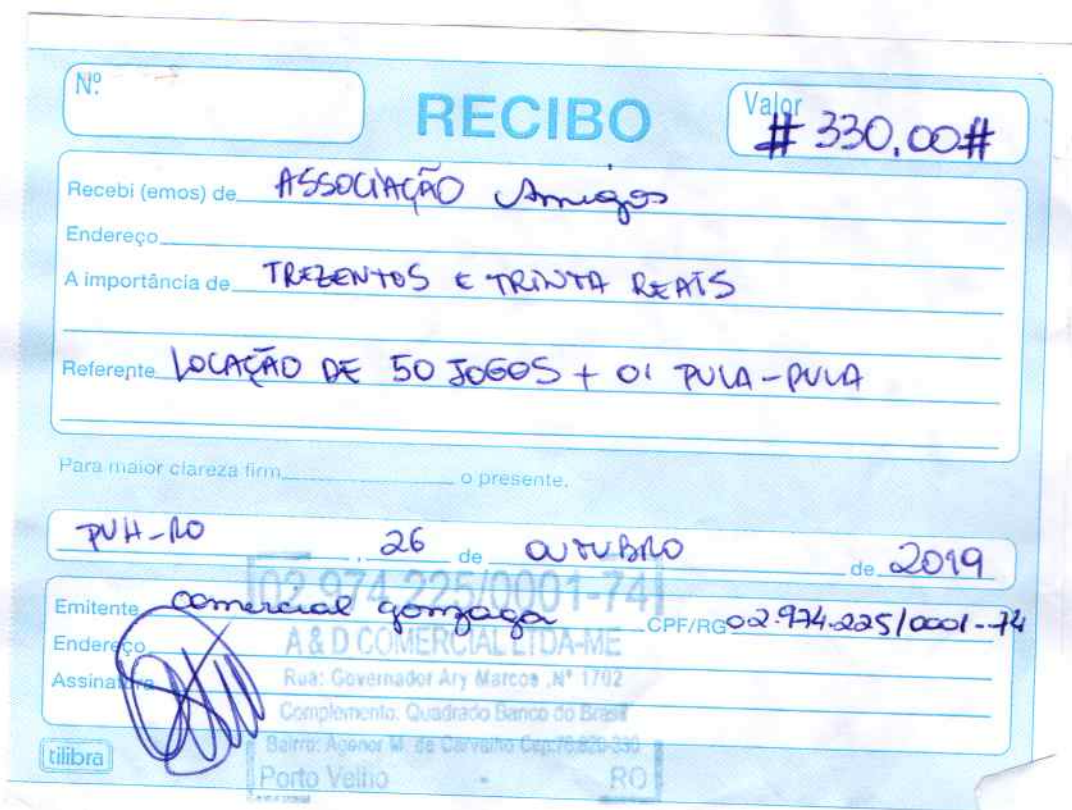 Nº
RECIBO
Valor
# 330,00 #
Recebi (emos) de ASSOCIAÇÃO Amigos
Endereço
A importância de TREZENTOS E TRINTA REAIS
Referente LOCAÇÃO DE 50 JOGOS + 01 PULA-PULA
Para maior clareza firm o presente.
PVH-RO, 26 de OUTUBRO de 2019
02.974.225/0001-74
Emitente comercial gonzaga CPF/RG 02.974.225/0001-74
A & D COMERCIAL LTDA-ME
Endereço
Rua: Governador Ary Marcos ,Nº 1702
Assinatura
Complemento: Quadrado Banco do Brasil
Bairro: Agenor M. de Carvalho Cep:76.820-330
Porto Velho - RO
tilibra